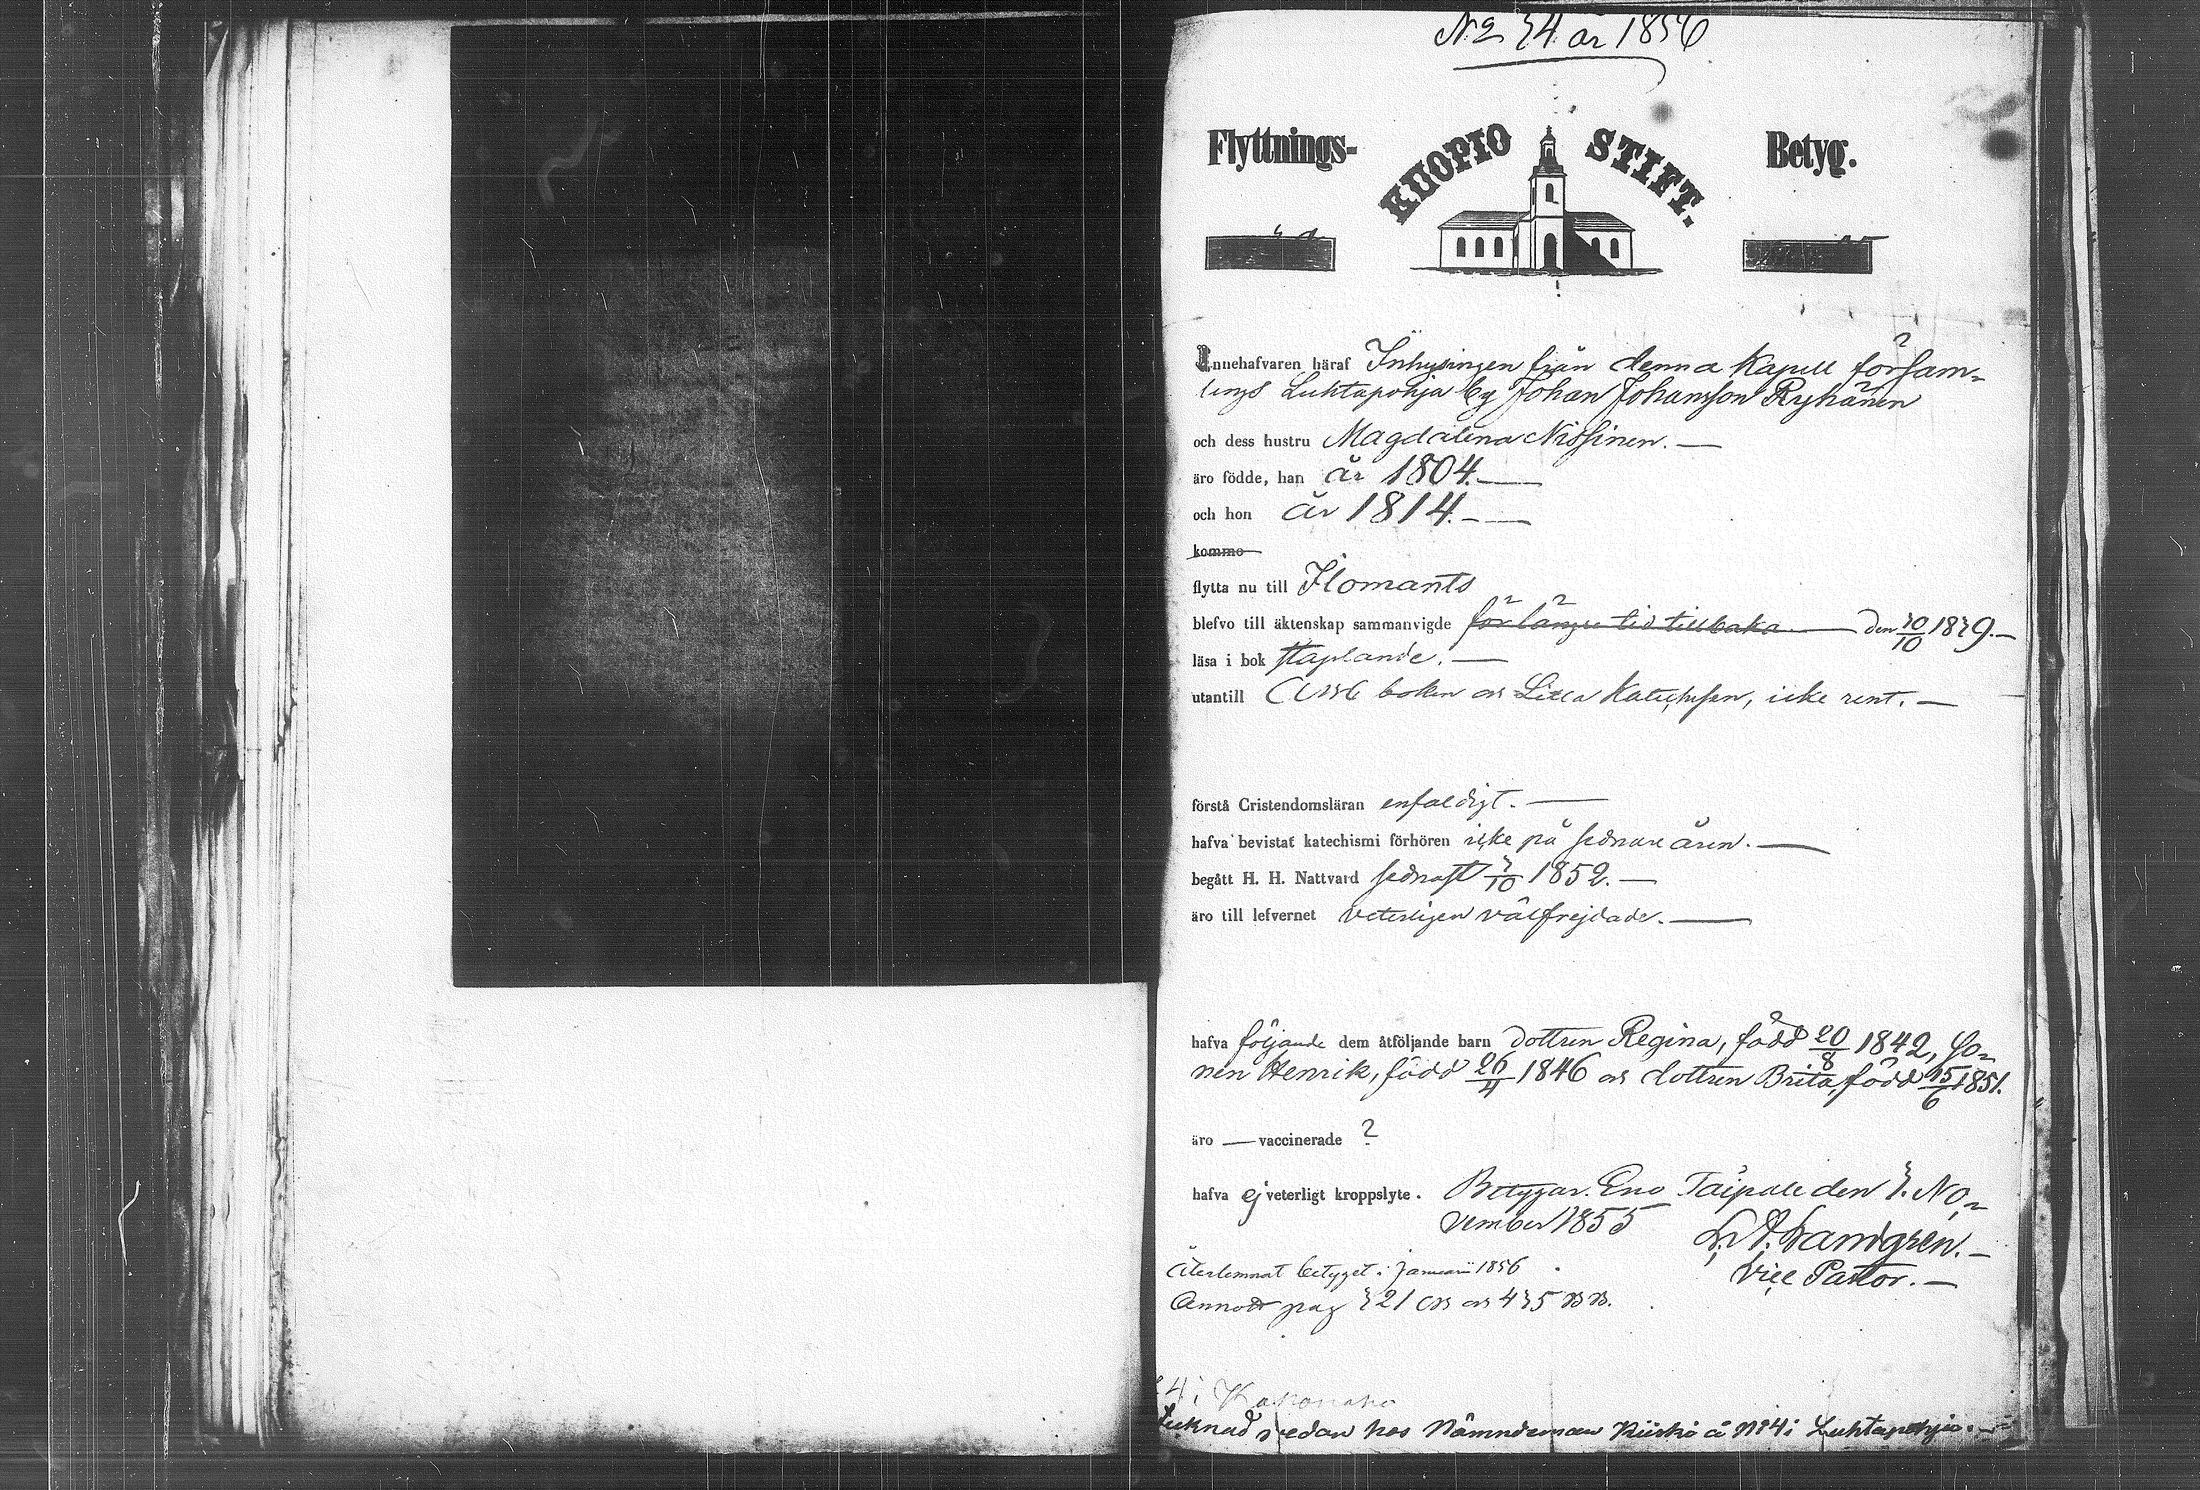 No 34 år 1856
Flyttnings- KUOPIO STIFT. Betyg.
Innehafvaren häraf Inhysingen från denna Kapell försam-
lings Luhtapohja by Johan Johansson Ryhänen
och dess hustru Magdalena Nissinen. —
äro födde, han år 1804. —
och hon år 1814. —
kommo
flytta nu till Ilomants
blefvo till äktenskap sammanvigde för längre tid tillbaka — den 30/10 1839. —
läsa i bok staplande. —
utantill ABC boken och Lilla Katechesen, icke rent. —
förstå Cristendomsläran enfaldigt. —
hafva bevistat katechismi förhören icke på sednare åren. —
begått H. H. Nattvard sednast 3/10 1852. —
äro till lefvernet veterligen välfrejdade. —
hafva följande dem åtföljande barn dottren Regina, född 20/8 1842, So-
nen Henrik, född 26/4 1846 och dottren Brita, född 15/6 1851.
äro — vaccinerade ?
hafva ej veterligt kroppslyte. Betygar. Eno Taipale den 3. No-
vember 1855
Landgrén. —
Vice Pastor. —
Återlemnat betyget i januarii 1856
Annot pag 321 och 435
4 i
sedan hos Nämndeman Kiiski å No 4 i Luhtapohja. —